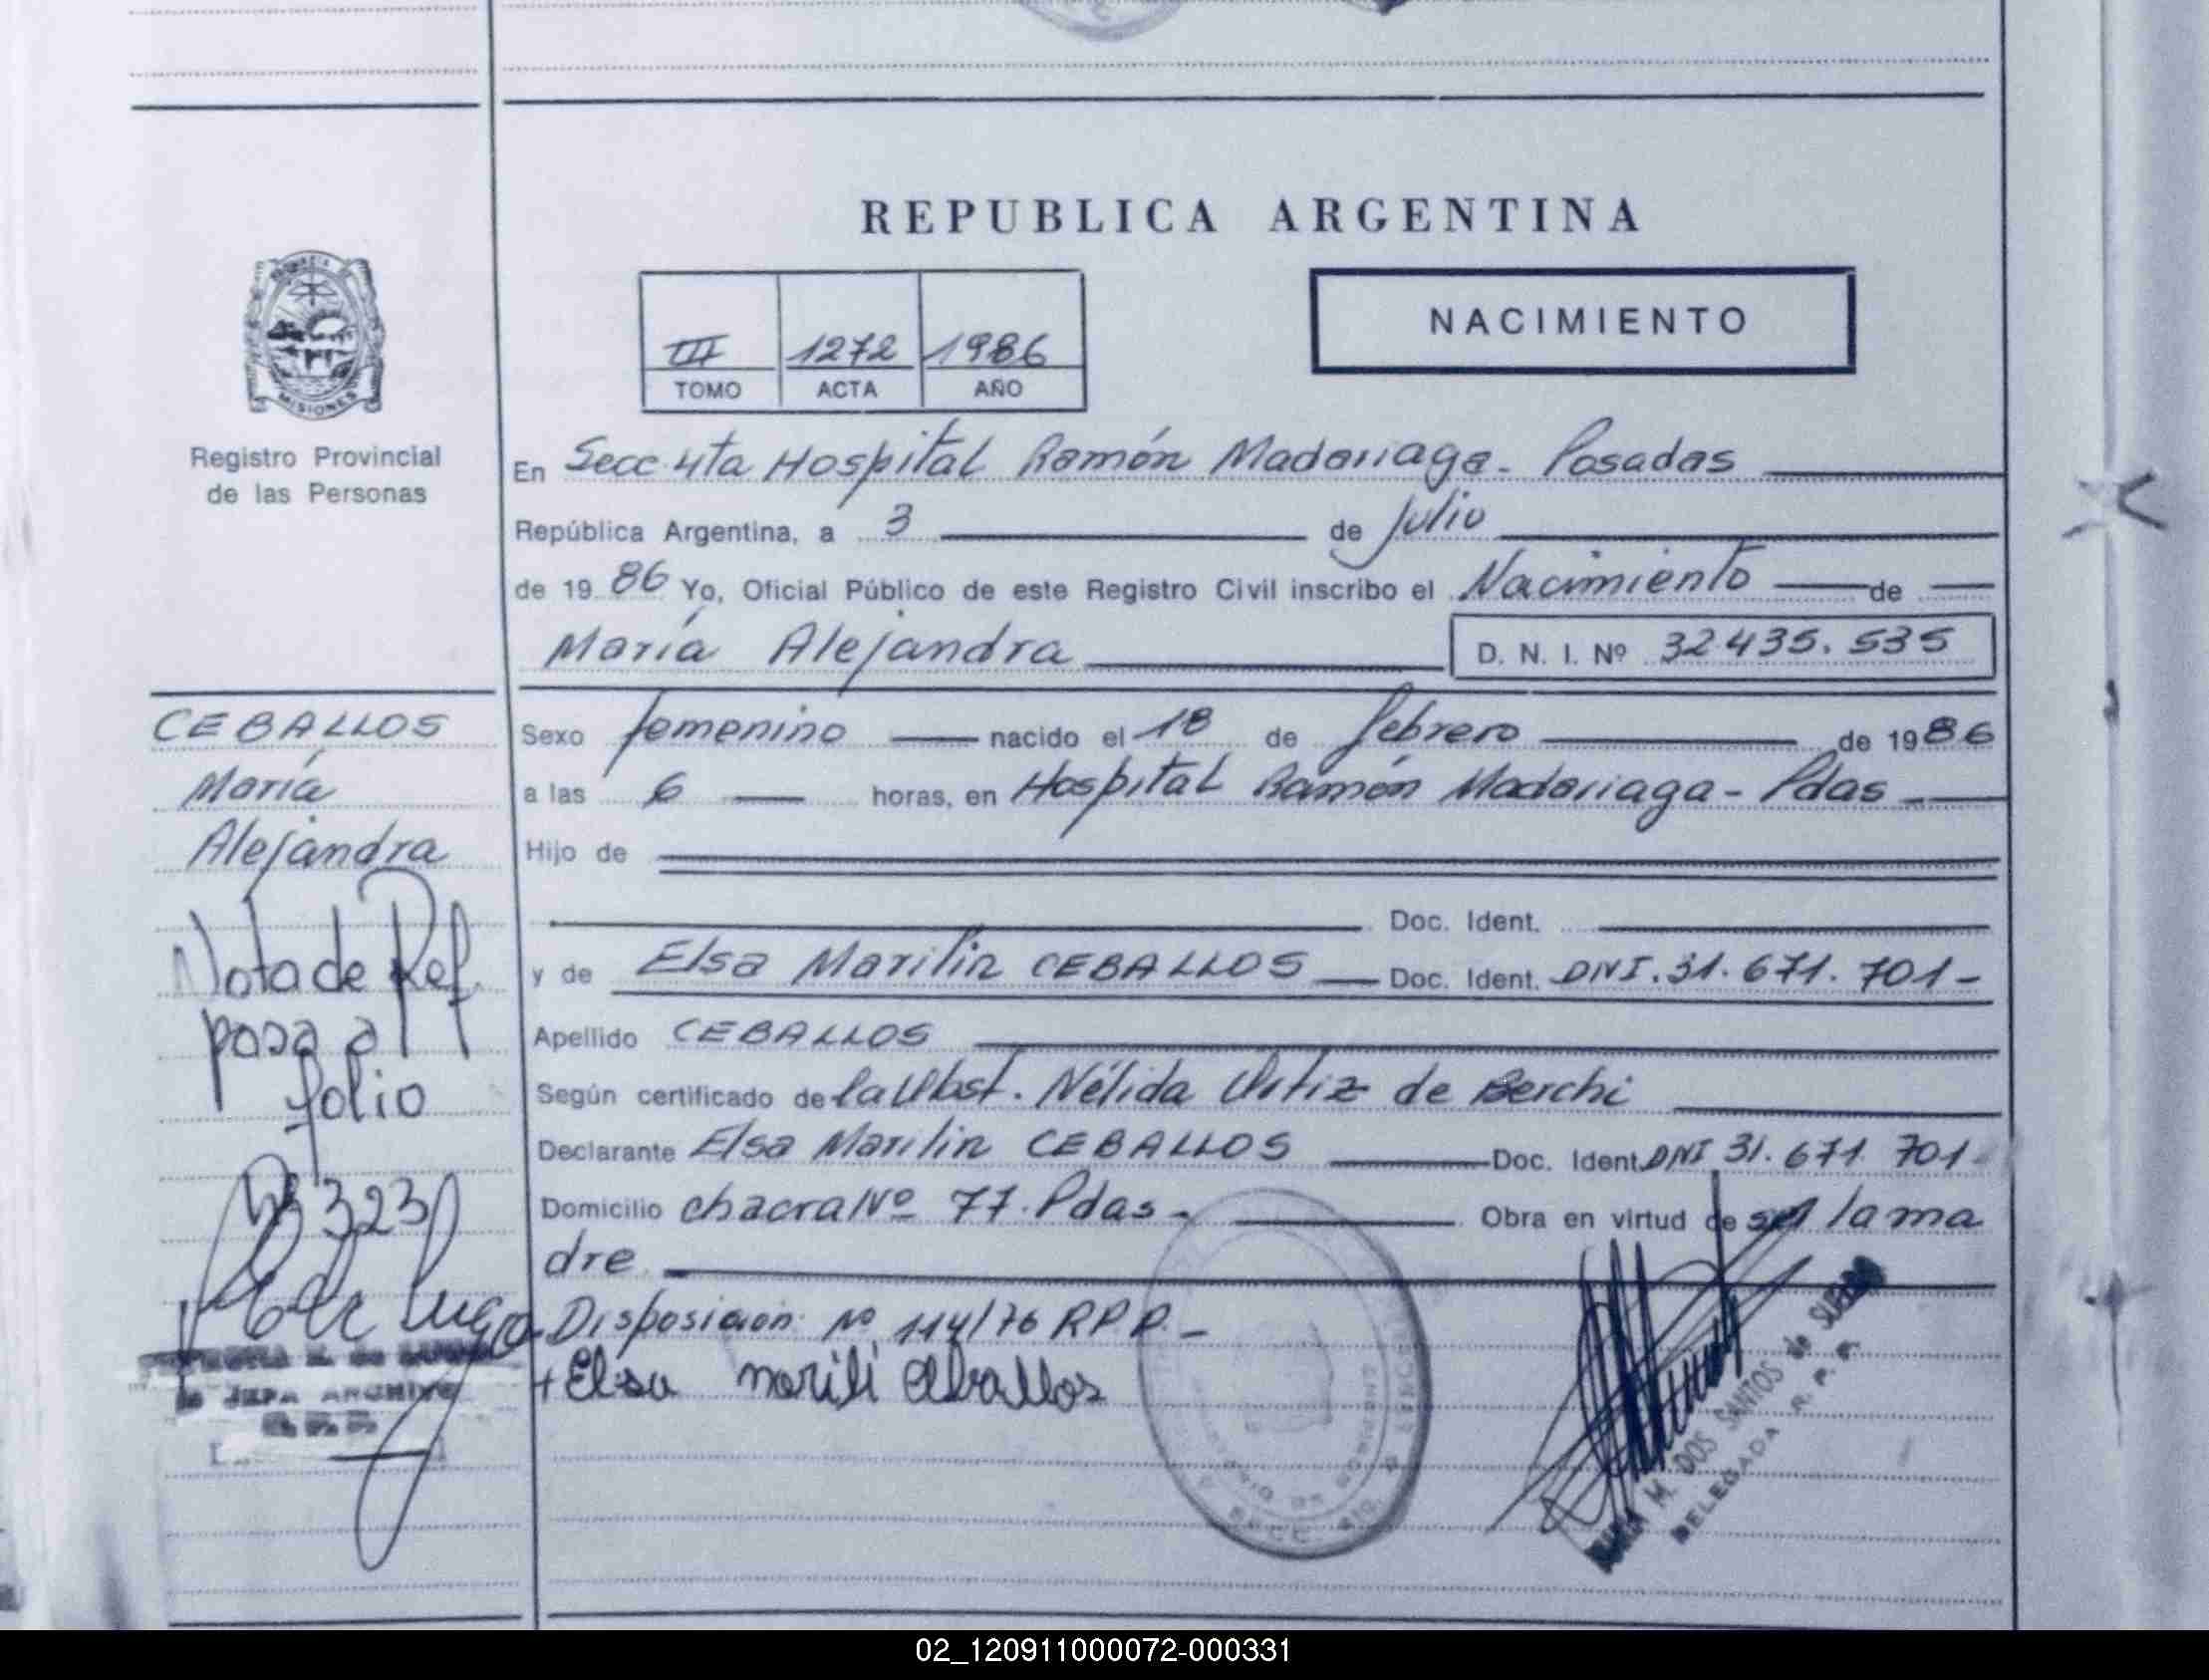 REPUBLICA ARGENTINA
NACIMIENTO
III 1272 1986
TOMO ACTA AÑO
MISIONES
Registro Provincial
de las Personas
En Secc. 4ta Hospital Ramón Madariaga - Posadas
República Argentina, a 3 de Julio
de 1986 Yo, Oficial Público de este Registro Civil inscribo el Nacimiento de
María Alejandra D. N. I. Nº 32.435.535
CEBALLOS
María
Alejandra
Nota de Ref.
pasa al
folio
323
Sexo femenino nacido el 18 de febrero de 1986
a las 6 horas, en Hospital Ramón Madariaga - Pdas
Hijo de
Doc. Ident.
y de Elsa Marilin CEBALLOS Doc. Ident. DNI. 31.671.701-
Apellido CEBALLOS
Según certificado de la Obst. Nélida Ortiz de Berchi
Declarante Elsa Marilin CEBALLOS Doc. Ident. DNI 31.671.701-
Domicilio chacra Nº 77. Pdas - Obra en virtud de ser la ma
dre
Disposición Nº 114/76 RPP.-
+ Elsa marili Ceballos
JEFA ARCHIVO
M. DOS SANTOS de
DELEGADA R. P. P.
02_120911000072-000331